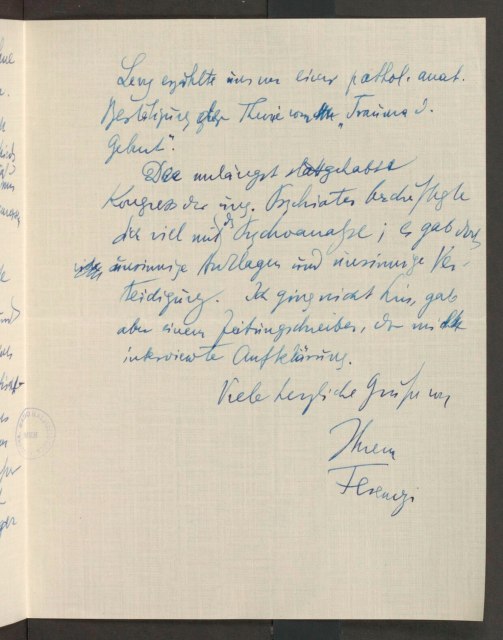 Levy erzählte uns von einer pathol. anat.
Bestätigung der Theorie vom „Trauma d.
Geburt“.
Der unlängst stattgehabte
Kongress der ung. Psychiater beschäftigte
sich viel mit der Psychoanalyse; es gab dort
unsinnige Anklagen und unsinnige Ver-
teidigung. Ich ging nicht hin, gab
aber einem Zeitungschreiber, der mich
interviewte Aufklärung.
Viele herzliche Grüße von
Ihrem
Ferenczi